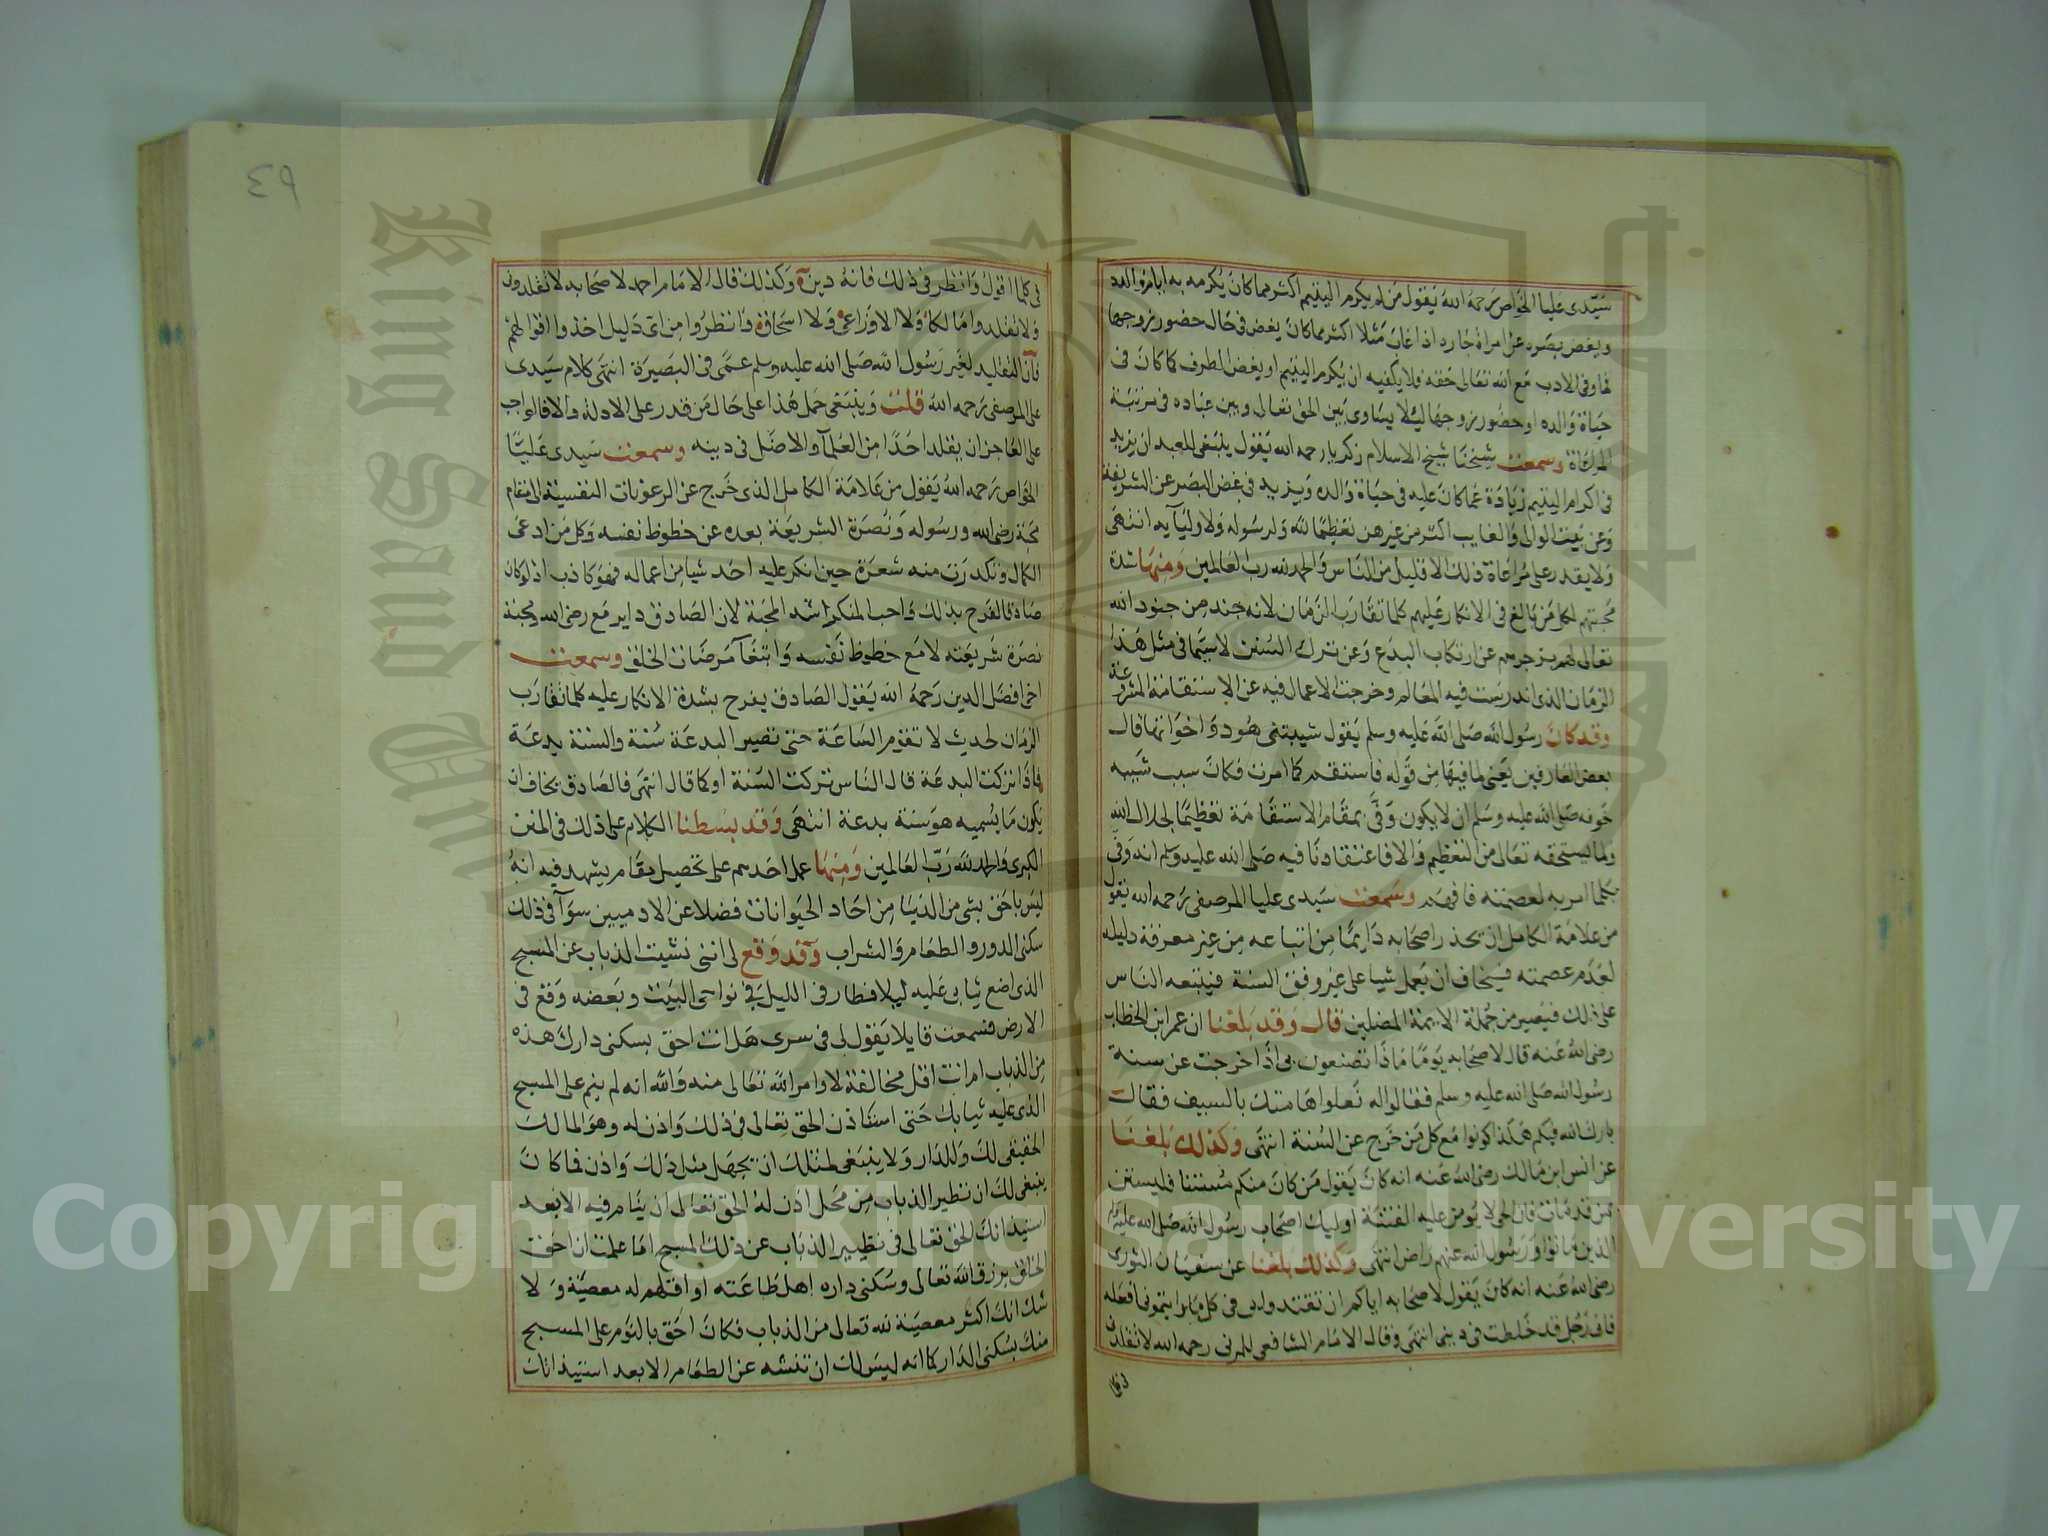 سيدي عليا الخواص رحمه الله يقول من لم يكرم اليتيم اكثر مما كان يكرمه به ايام والده
وبغض بصره عن امراة جاره اذا غاب مثلا اكثر مما كان يغض في حال حضور زوجها
فما وفى الادب مع الله تعالى حقه فلا يكفيه ان يكرم اليتيم او يغض الطرف كما كان في
حياة والده او حضور زوجها ليلا يساوي بين الحق تعالى وبين عباده في مرتبة
المراعاة وسمعت شيخنا شيخ الاسلام زكريا رحمه الله يقول ينبغي للعبد ان يزيد
في اكرام اليتيم زيادة عما كان عليه في حياة والده ويزيد في غض البصر عن الشريفة
وعن بيت الوالي والغايب اكثر من غيرهن تعظيما لله ولرسوله ولاوليايه انتهى
ولا يقدر على مراعاة ذلك الا قليل من الناس والحمد لله رب العالمين ومنها شدة
محبتهم لكل من بالغ في الانكار عليهم كلما تقارب الزمان لانه جند من جنود الله
تعالى لهم يزجرهم عن ارتكاب البدع وعن ترك السنن لا سيما في مثل هذا
الزمان الذي اندرست فيه المعالم وخرجت الاعمال فيه عن الاستقامة المشروعة
وقد كان رسول الله صلى الله عليه وسلم يقول شيبتني هود واخواتها قال
بعض العارفين يعني ما فيها من قوله فاستقم كما امرت فكان سبب شيبه
خوفه صلى الله عليه وسلم ان لا يكون وفى بمقام الاستقامة تعظيما لجلال الله
ولما يستحقه تعالى من التعظيم والا فاعتقادنا فيه صلى الله عليه وسلم انه وفى
بكلما امر به لعصمته فافهم وسمعت سيدي عليا المرصفي رحمه الله يقول
من علامة الكامل ان يحذر اصحابه دايما من اتباعه من غير معرفة دليله
لعدم عصمته فيخاف ان يعمل شيا على غير وفق السنة فيتبعه الناس
على ذلك فيصير من جملة الايمة المضلين قال وقد بلغنا ان عمر ابن الخطاب
رضي الله عنه قال لاصحابه يوما ماذا تصنعون بي اذا خرجت عن سنة
رسول الله صلى الله عليه وسلم فقالوا له نعلوا هامتك بالسيف فقال
بارك الله فيكم هكذا كونوا مع كل من خرج عن السنة انتهى وكذلك بلغنا
عن انس ابن مالك رضي الله عنه انه كان يقول من كان منكم مستنا فليستن
بمن قد مات فان الحي لا يومن عليه الفتنة اوليك اصحاب رسول الله صلى الله عليه وسلم
الذين ماتوا ورسول الله عنهم راض انتهى وكذلك بلغنا عن سفيان الثوري
رضي الله عنه انه كان يقول لاصحابه اياكم ان تقتدوا بي في كل ما رايتموني افعله
فاني رجل قد خلطت في ديني انتهى وقال الامام الشافعي للمزني رحمه الله لا تقلدني
في كلما
٤٩
في كلما اقول وانظر في ذلك فانه دين وكذلك قال الامام احمد لاصحابه لا تقلدوني
ولا تقلدوا مالكا ولا الاوزاعي ولا اسحاق وانظروا من اي دليل اخذوا اقوالهم
فان التقليد لغير رسول الله صلى الله عليه وسلم عمى في البصيرة انتهى كلام سيدي
علي المرصفي رحمه الله قلت وينبغي حمل هذا على حال من قدر على الادلة والا فالواجب
على العاجز ان يقلد احدا من العلما والا ضل في دينه وسمعت سيدي عليا
الخواص رحمه الله يقول من علامة الكامل الذي خرج عن الرعونات النفسية الى مقام
محبة رضى الله ورسوله ونصرة الشريعة بعده عن حظوظ نفسه وكل من ادعى
الكمال وتكدرت منه شعرة حين انكر عليه احد شيا من اعماله فهو كاذب اذ لو كان
صادقا لفرح بذلك واحب المنكر اشد المحبة لان الصادق داير مع رضى الله ومحبة
نصرة شريعته لا مع حظوظ نفسه وابتغا مرضات الخلق وسمعت
اخي افضل الدين رحمه الله يقول الصادق يفرح بشدة الانكار عليه كلما تقارب
الزمان لحديث لا تقوم الساعة حتى تصير البدعة سنة والسنة بدعة
فاذا تركت البدعة قال الناس تركت السنة او كما قال انتهى فالصادق يخاف ان
يكون ما يسميه هو سنة بدعة انتهى وقد بسطنا الكلام على ذلك في المنن
الكبرى والحمد لله رب العالمين ومنها عمل احدهم على تحصيل مقام يشهد فيه انه
ليس باحق بشي من الدنيا من احاد الحيوانات فضلا عن الادميين سوا في ذلك
سكنى الدور والطعام والشراب وقد وقع لي انني نشيت الذباب عن المسبح
الذي اضع ثيابي عليه ليلا فطار في الليل في نواحي البيت وبعضه وقع في
الارض فسمعت قايلا يقول لي في سري هل انت احق بسكنى دارك هذه
من الذباب ام انت اقل مخالفة لاوامر الله تعالى منه والله انه لم ينم على المسبح
الذي عليه ثيابك حتى استاذن الحق تعالى في ذلك واذن له وهو المالك
الحقيقي لك وللدار ولا ينبغي لمثلك ان يجهل مثل ذلك واذن فما كان
ينبغي لك ان تطير الذباب من محل اذن له الحق تعالى ان ينام فيه الا بعد
استيذانك الحق تعالى في تطيير الذباب عن ذلك المسبح اما علمت ان احق
الخلق برزق الله تعالى وسكنى داره اهل طاعته او اقلهم له معصية ولا
شك انك اكثر معصية لله تعالى من الذباب فكان احق بالنوم على المسبح
منك بسكنى الدار كما انه ليس لك ان تنشه عن الطعام الا بعد استيذانك